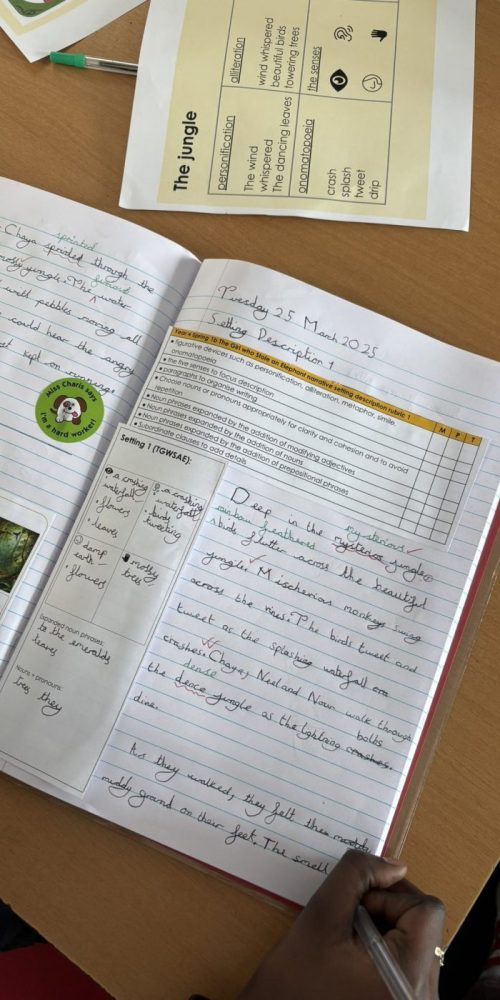 The jungle
personification
The wind
whispered
The dancing leaves
alliteration
wind whispered
beautiful birds
towering trees
onomatopoeia
crash
splash
tweet
drip
the senses
sprinted
Chaya sprinted through the
mossy jungle. The water
with pebbles
all
could hear the angry
kept on running
Miss Charis says
I'm a hard worker!
Tuesday 25 March 2025
Setting Description 1
Year 4 Spring 1b The Girl who Stole an Elephant narrative setting description rubric 1
M P T
• figurative devices such as personification, alliteration, metaphor, simile,
onomatopoeia
• the five senses to focus description
• paragraphs to organise writing
• Choose nouns or pronouns appropriately for clarity and cohesion and to avoid
repetition
• Noun phrases expanded by the addition of modifying adjectives
• Noun phrases expanded by the addition of nouns
• Noun phrases expanded by the addition of prepositional phrases
• Subordinate clauses to add details
Setting 1 (TGWSAE):
• a crashing
waterfall
• flowers
• leaves
• a crashing
waterfall
• birds
tweeting
damp
earth
• flowers
mossy
trees
Expanded noun phrases:
to the emeraldy
leaves
Nouns + pronouns:
tree they
mysterious
Deep in the mysterios jungle
rainbow feathered
birds flutter across the beautiful
jungle. Mischerious monkeys swing
across the vines. The birds tweet and
tweet as the splashing waterfall
crashes. Chaya, Neel and Nour walk through
dense
bolts
the dence jungle as the lightning crashes.
As they walked, they felt the
muddy grand on their feet. The smell